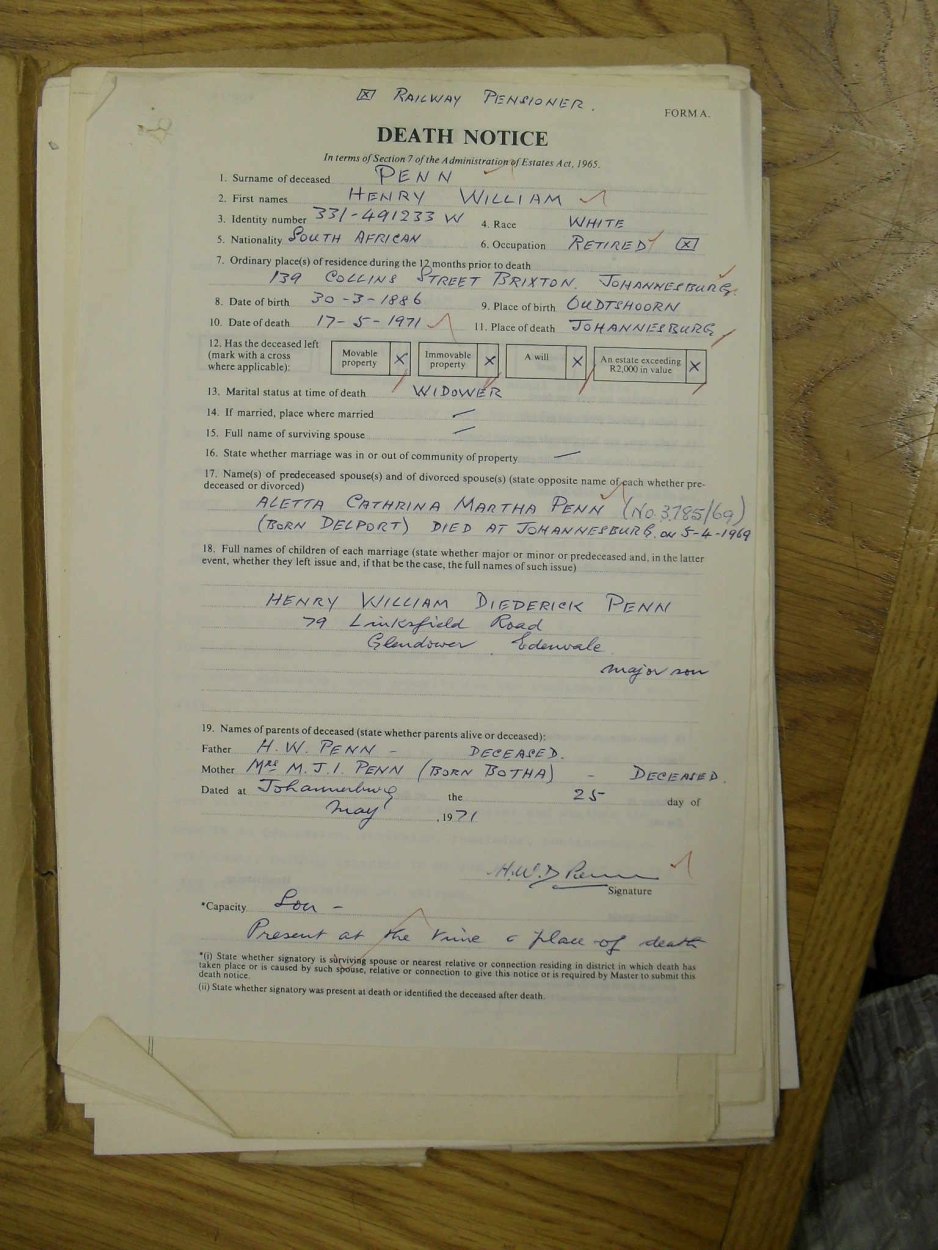 ☒ RAILWAY PENSIONER.
FORM A.
DEATH NOTICE
In terms of Section 7 of the Administration of Estates Act, 1965.
1. Surname of deceased PENN
2. First names HENRY WILLIAM
3. Identity number 331-491233 W 4. Race WHITE
5. Nationality SOUTH AFRICAN 6. Occupation RETIRED ☒
7. Ordinary place(s) of residence during the 12 months prior to death
139 COLLINS STREET BRIXTON. JOHANNESBURG.
8. Date of birth 30-3-1886 9. Place of birth OUDTSHOORN
10. Date of death 17-5-1971 11. Place of death JOHANNESBURG
12. Has the deceased left (mark with a cross where applicable): Movable property X Immovable property X A will X An estate exceeding R2,000 in value X
13. Marital status at time of death WIDOWER
14. If married, place where married —
15. Full name of surviving spouse —
16. State whether marriage was in or out of community of property —
17. Name(s) of predeceased spouse(s) and of divorced spouse(s) (state opposite name of each whether pre-
deceased or divorced)
ALETTA CATHRINA MARTHA PENN (No. 3785/69)
(BORN DELPORT) DIED AT JOHANNESBURG. on 5-4-1969
18. Full names of children of each marriage (state whether major or minor or predeceased and, in the latter
event, whether they left issue and, if that be the case, the full names of such issue)
HENRY WILLIAM DIEDERICK PENN
79 Linksfield Road
Glendower. Edenvale
major son
19. Names of parents of deceased (state whether parents alive or deceased):
Father H. W. PENN - DECEASED.
Mother Mrs M.J.I. PENN (BORN BOTHA) - DECEASED.
Dated at Johannesburg the 25 day of
May , 1971
H.W.D Penn
Signature
*Capacity Son -
Present at the time & place of death
*(i) State whether signatory is surviving spouse or nearest relative or connection residing in district in which death has
taken place or is caused by such spouse, relative or connection to give this notice or is required by Master to submit this
death notice.
(ii) State whether signatory was present at death or identified the deceased after death.